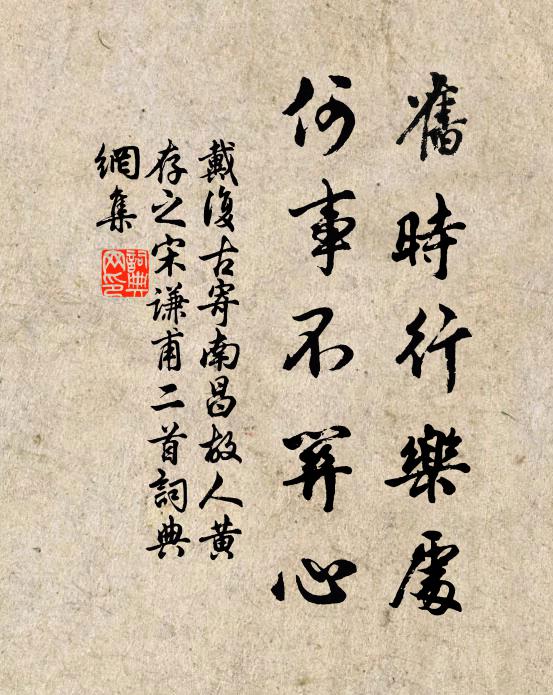 舊時行樂處
何事不關心
戴復古寄南昌故人黃
存之宋謙甫二首詞典
網集
詞典
网印